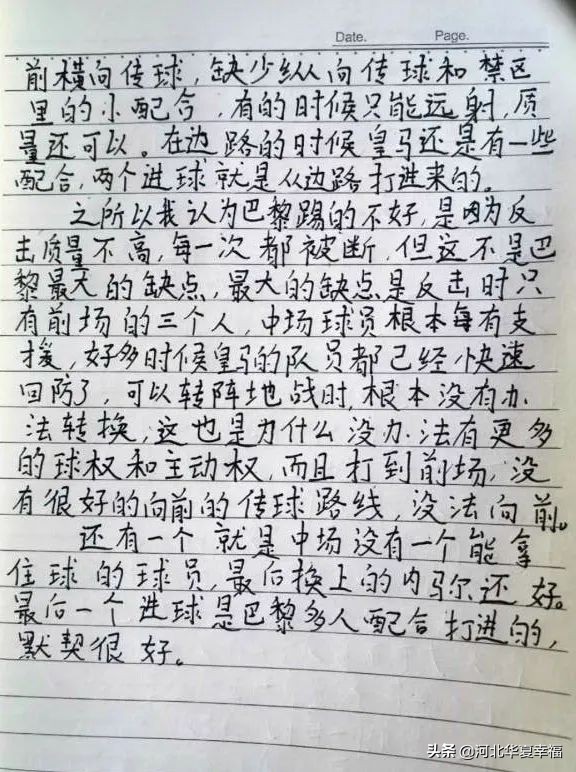 Date.
Page.
前横向传球,缺少纵向传球和禁区
里的小配合,有的时候只能远射,质
量还可以。在边路的时候皇马还是有一些
配合,两个进球就是从边路打进来的。
之所以我认为巴黎踢的不好,是因为反
击质量不高,每一次都被断,但这不是巴
黎最大的缺点,最大的缺点是反击时只
有前场的三个人,中场球员根本每有支
援,好多时候皇马的队员都已经快速
回防了,可以转阵地战时,根本没有办
法转换,这也是为什么没办法有更多
的球权和主动权,而且打到前场,没
有很好的向前的传球路线,没法向前。
还有一个就是中场没有一个能拿
住球的球员,最后换上的内马尔还好。
最后一个进球是巴黎多人配合打进的,
默契很好。
头条 @河北华夏幸福